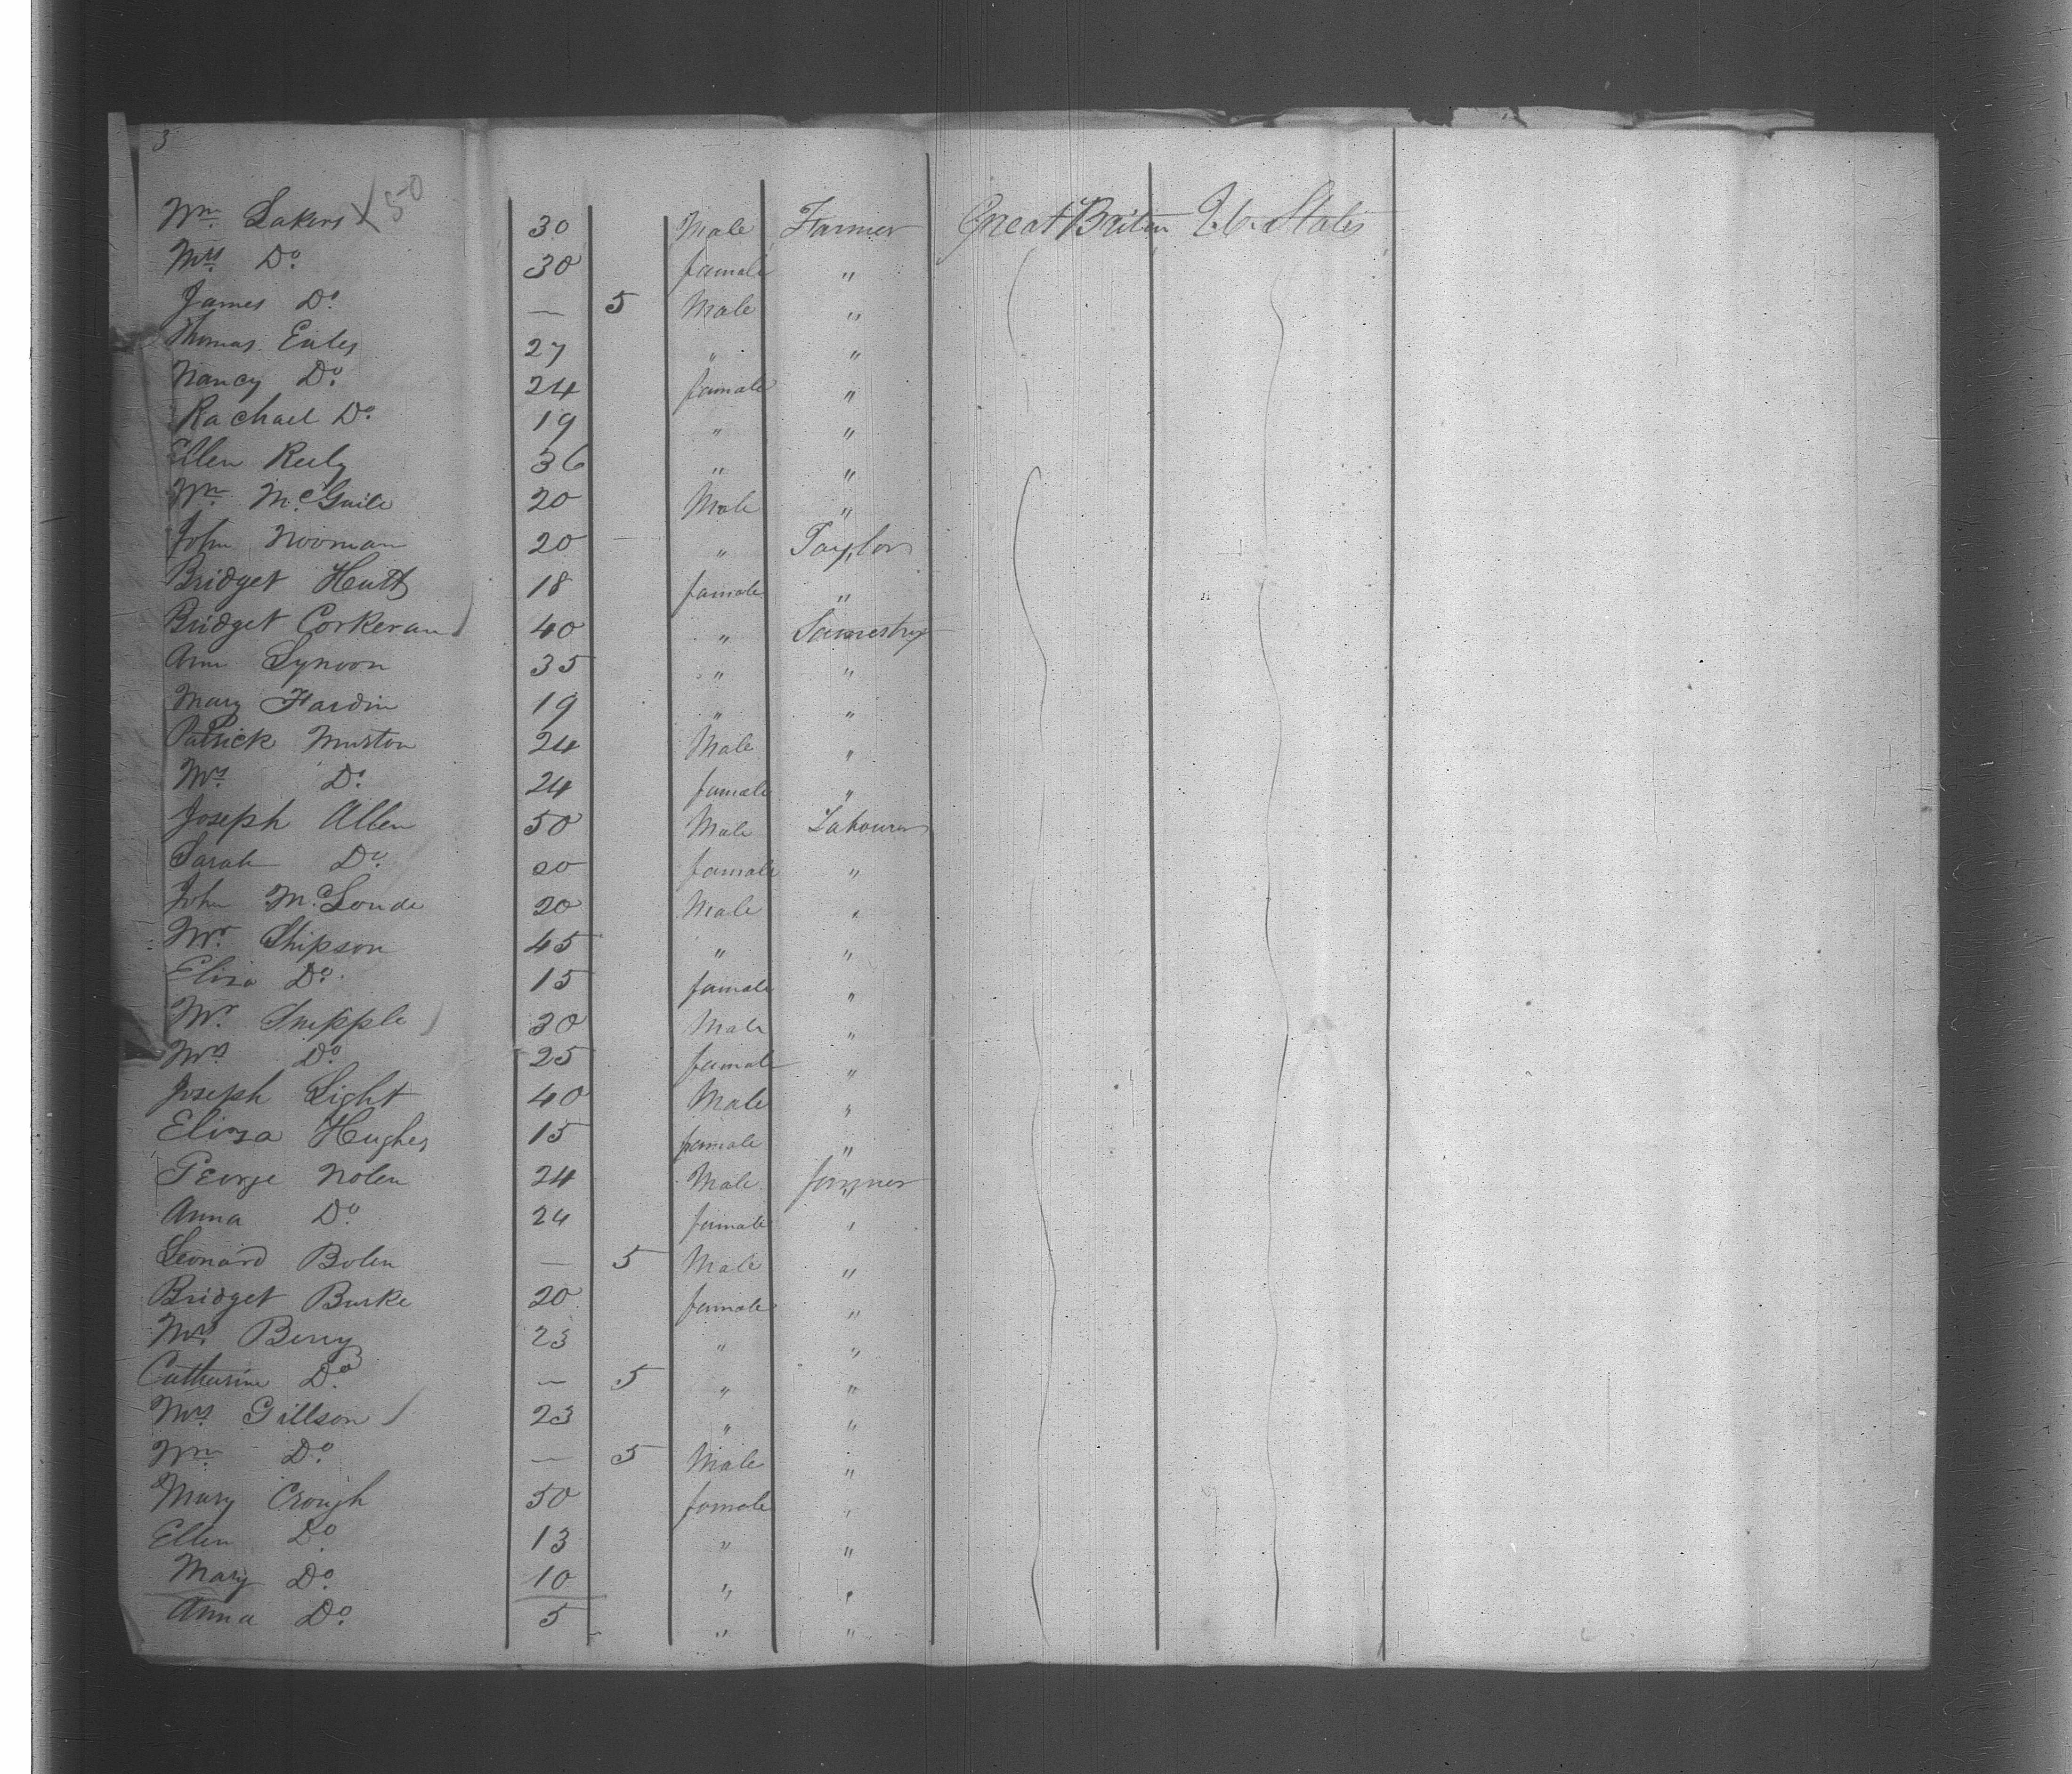 3
Wm. Lakers X 50 30 Male Farmer Great Briten U. States
Mrs Do. 30 female "
James Do. — 5 Male "
Thomas Eales 27 " "
Nancy Do. 24 female "
Rachael Do. 19 " "
Ellen Reily 36 " "
Wm. McGuile 20 Male "
John Nooman 20 " Taylor
Bridget Hutt 18 female "
Bridget Corkeran 40 " Samestrys
Ann Synoon 35 " "
Mary Hardin 19 " "
Patrick Murton 24 Male "
Mrs Do. 24 female "
Joseph Allen 50 Male Labourer
Sarah Do. 20 female "
John McLoude 20 Male "
Mr. Shipson 45 " "
Eliza Do. 15 female "
Mr. Snipple 30 Male "
Mrs Do. 25 female "
Joseph Light 40 Male "
Eliza Hughes 15 female "
George Nolen 24 Male farmer
Anna Do. 24 female "
Leonard Bolen — 5 Male "
Bridget Burke 20 female "
Mrs. Berry 23 " "
Catharine Do. — 5 " "
Mrs. Gillson 23 " "
Wm. Do. — 5 Male "
Mary Crough 50 female "
Ellen Do. 13 " "
Mary Do. 10 " "
Anna Do. 5 " "